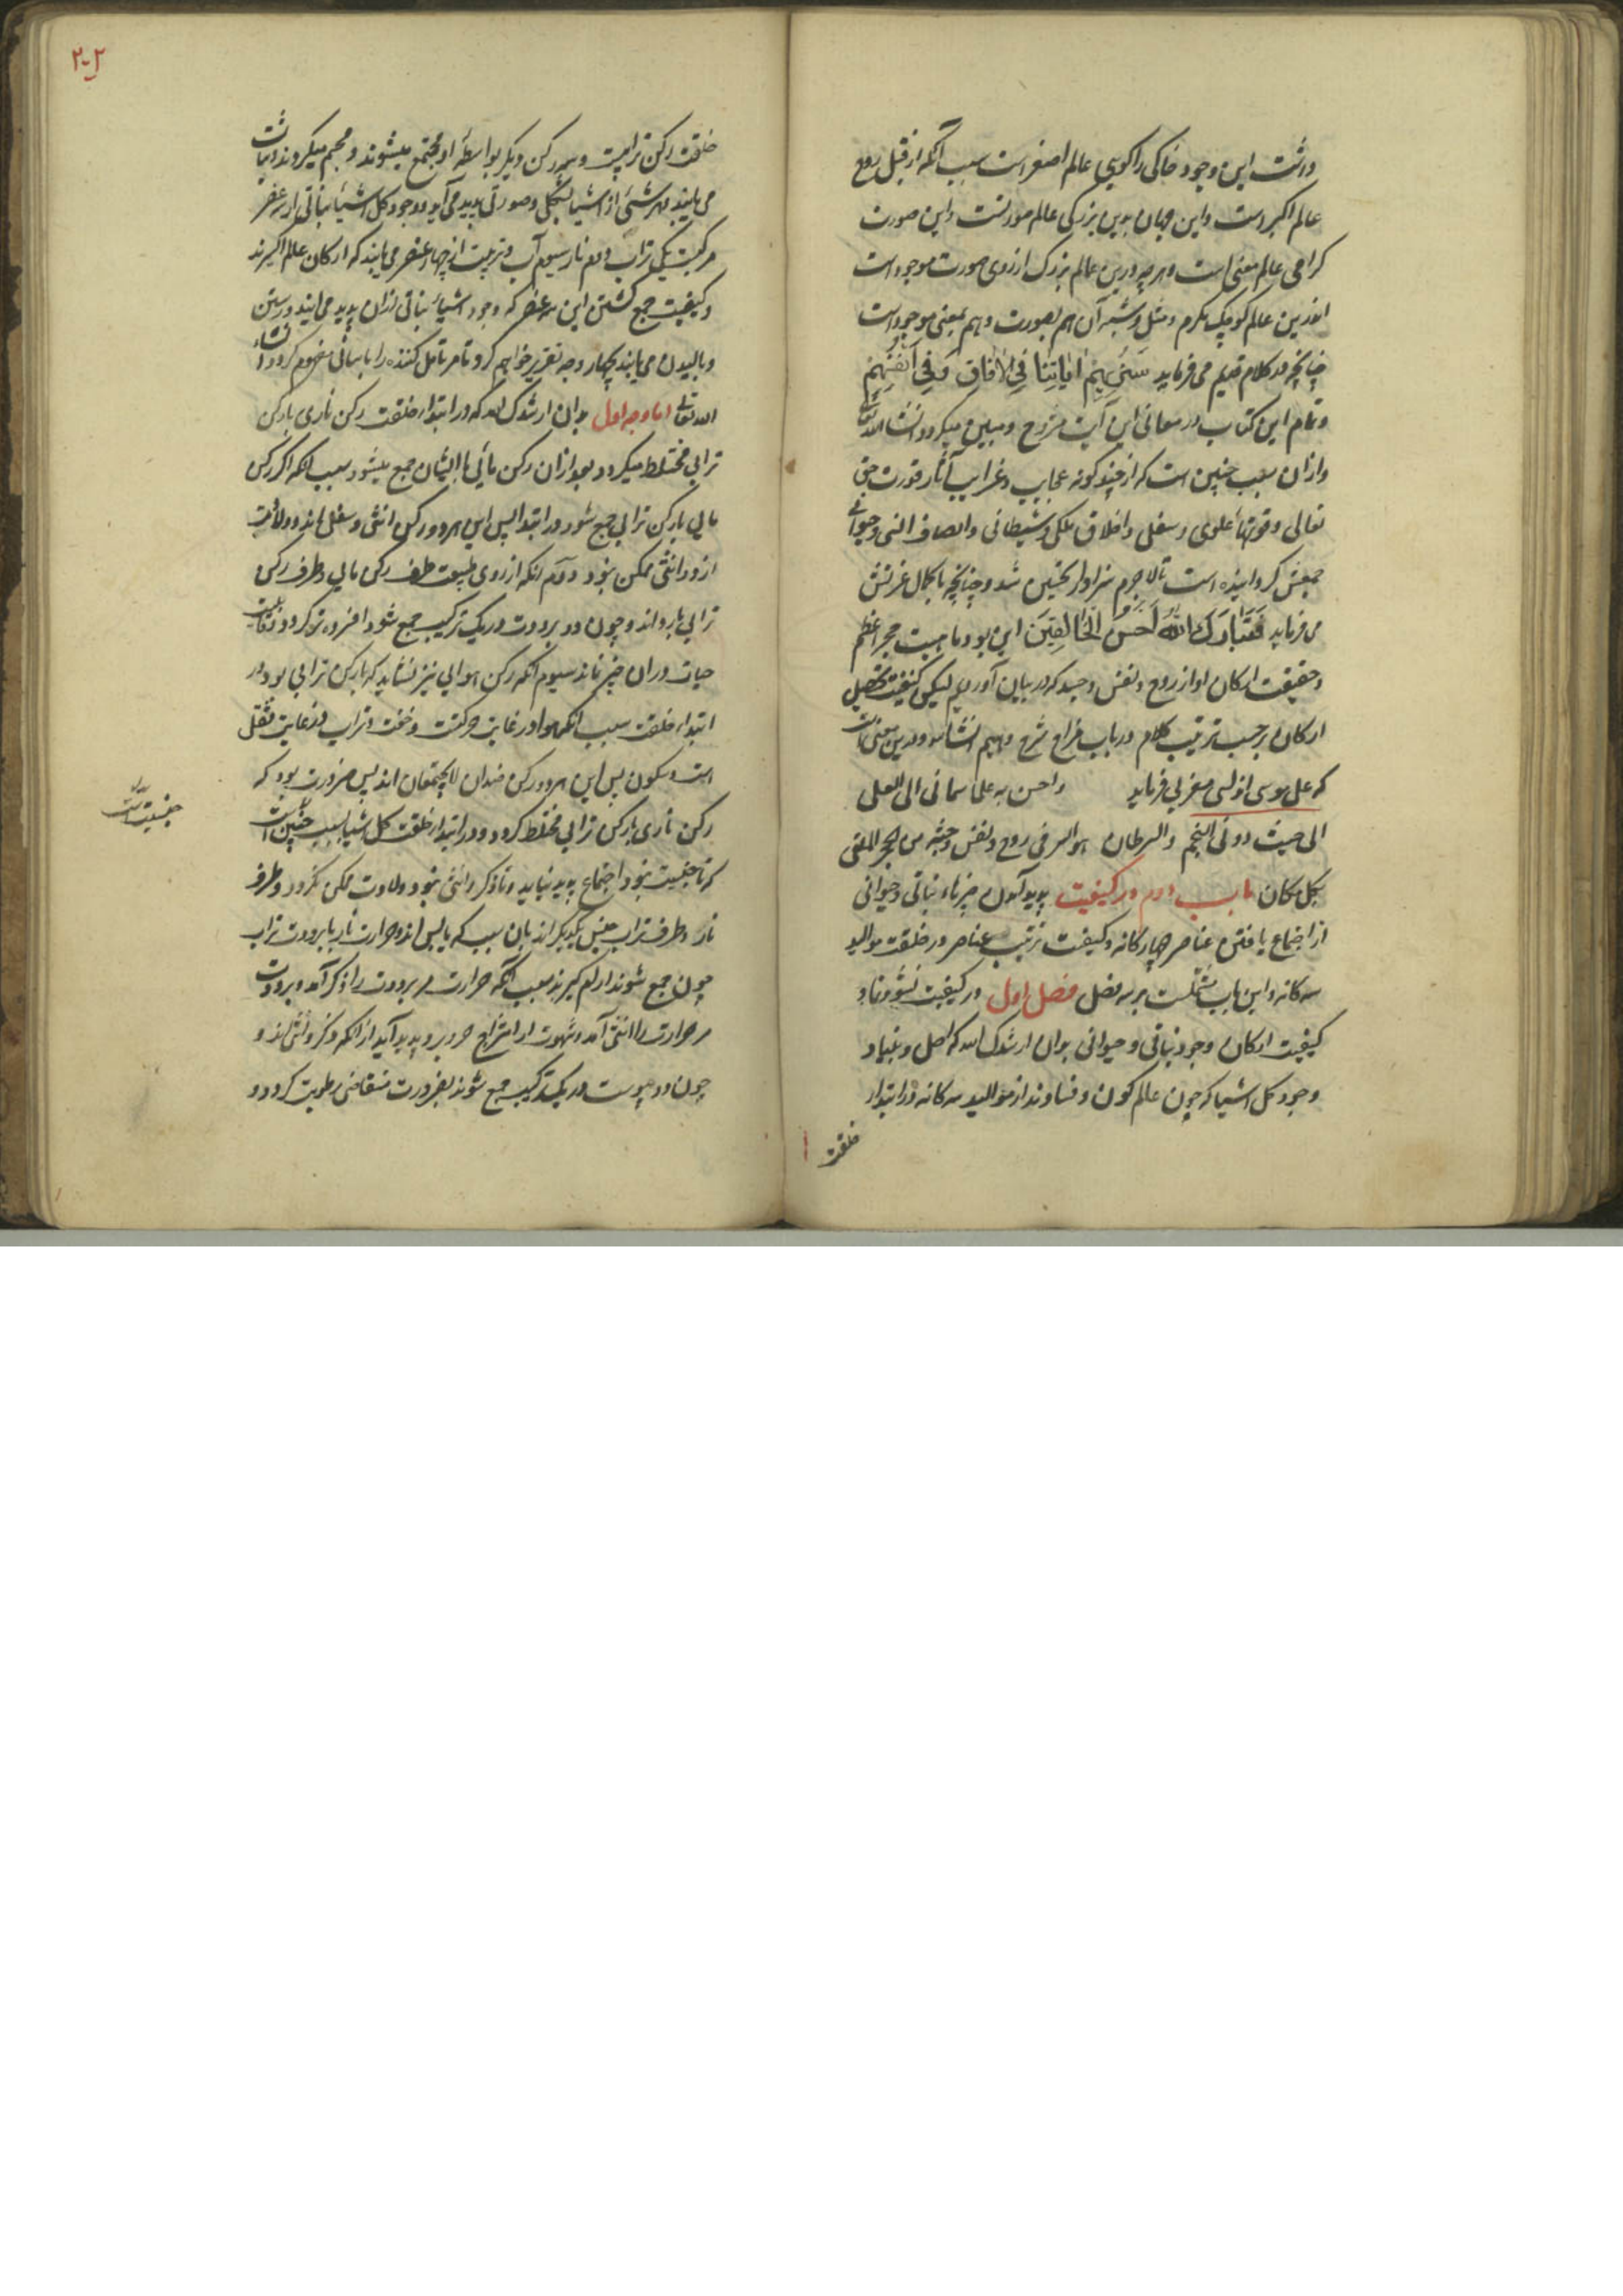 داشت این وجود خاکی را کویی عالم اصغر است سبب آنکه از قبل روح
عالم اکبر است و این جهان بدین بزرکی عالم صورتست و این صورت
کرامی عالم معنی است و هرچه درین عالم بزرک از روی صورت موجود است
اندرین عالم کوچک مکرم و مثل و شبه آن هم بصورت و هم بمعنی موجود است
چنانچه در کلام قدیم می فرماید سَنُرِیهِمْ اٰیَاتِنَا فِی الْاٰفَاقِ وَفِی اَنْفُسِهِمْ
و تمام این کتاب در معانی این آیت مشروح و مبین میکردد انشا الله تعالی
و ازان سبب چنین است که از چند کونه عجایب و غرایب آثار قدرت حق
تعالی و قوتهاء علوی و سفلی و اخلاق ملکی و شیطانی و اوصاف انسی و حیوانی
جمعش کردانیده است تا لاجرم سزاوار تحسین شد و چنانچه با کمال عزتش
می فرماید فَتَبَارَكَ اللّٰهُ اَحْسَنُ الْخَالِقِینَ این بود ماهیت حجر اعظم
و حقیقت ارکان او از روح و نفس و جسد که در بیان آوردیم لیکن کیفیت تحصیل
ارکان بر حسب ترتیب کلام در باب مزاج شرح دهیم انشا الله و درین معنی
که علی موسی اندلسی مغربی فرماید واحسن به علما سمانی الی العلی
الی حیث دونی النجم والسرطان هو السر فی روح و نفس و جثه من الحجر الملقی
بکل مکان باب دوم در کیفیت پدید آمدن چیزهاء نباتی و حیوانی
از اجتماع یافتن عناصر چهارکانه و کیفیت ترتیب عناصر در خلقت موالید
سه کانه و این باب مشتملست بر سه فصل فصل اول در کیفیت نشو و نما و
کیفیت ارکان وجود نباتی و حیوانی بدان ارشدک الله که اصل و بنیاد
وجود کل اشیا که چون عالم کون و فسادند از موالید سه کانه در ابتدا
خلقت
۲۰۲
خلقت رکن ترابیست و سه رکن دیکر بواسطه او مجتمع میشوند و مجسم میکردند و ثبات
می یابند و هر شئی از اشیا بشکلی و صورتی پدید می آید و وجود کل اشیاء نباتی از سه عنصر
مرکبست یکی تراب دوم نار سیوم آب و تربیت از چهار عنصر می یابند که ارکان عالم اکبرند
و کیفیت جمع کشتن این سه عنصر که وجود اشیاء نباتی ازان پدید می آیند و رستن
و بالیدن می یابند بچهار وجه تقریر خواهم کرد تا مر تامل کننده را باسانی مفهوم کردد انشاء
الله تعالی اما وجه اول بدان ارشدک الله که در ابتداء خلقت رکن ناری با رکن
ترابی مختلط میکردد بعد ازان رکن مائی با ایشان جمع میشود سبب آنکه اکر رکن
مایی با رکن ترابی جمع شود در ابتدا پس این هر دو رکن انثی و سفلی اند و ولادت
از دو انثی ممکن نبود دوم آنکه از روی طبیعت طرف رکن مایی و طرف رکن
ترابی بارد اند و چون دو برودت در یک ترکیب جمع شود افسرده تر کردد و
حیات دران چیز نماند سیوم آنکه رکن هوایی نیز نشاید که با رکن ترابی بود در
ابتداء خلقت سبب آنکه هوا در غایت حرکت و خفت و تراب در غایت ثقل
است و سکون پس این هر دو رکن ضدان لا یجتمعان اند پس ضرورت بود که
رکن ناری با رکن ترابی مختلط کردد و در ابتداء خلقت کل اشیا سبب چنین است
که تا جنسیت نبود اجتماع پدید نیاید و تا ذکر و انثی نبود ولادت ممکن نکردد و طرف
نار و طرف تراب جنس یکدیکر اند بدان سبب که یابس اند و حرارت نار با برودت تراب
چون جمع شوند آرام کیرند سبب آنکه حرارت مر برودت را ذکر آمد و برودت
مر حرارت را انثی آمد و شهوت از امتزاج هر دو پدید آید از آنکه ذکر و انثی اند و
چون دو یبوست در یک ترکیب جمع شوند بضرورت متقاضی رطوبت کردد و
جنسیت است